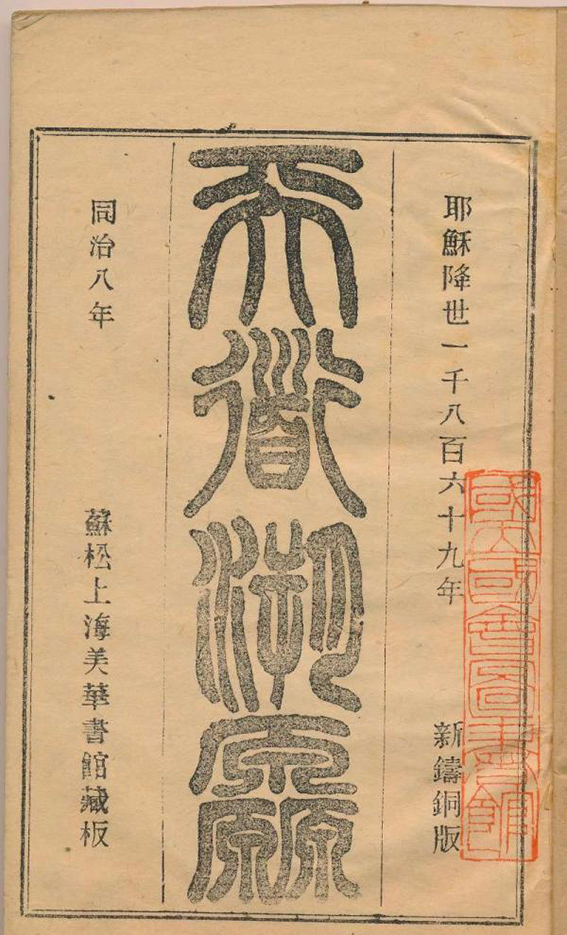 耶穌降世一千八百六十九年 新鑄銅版
天道溯原
同治八年 蘇松上海美華書館藏板
國立國會圖書館